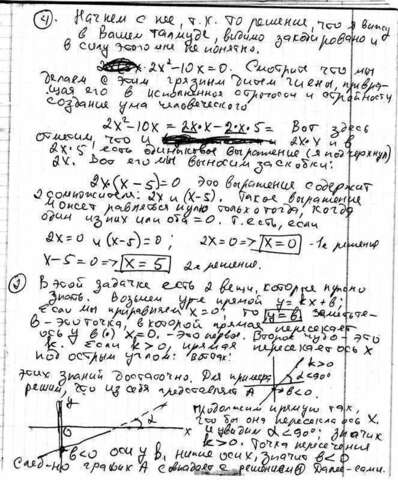 ④ Начнем с нее, т.к. то решение, что я вижу
в Вашем талмуде, видимо закодировано и
в силу этого мне не понятно.
2x²-10x=0. Смотрите что мы
делаем с этим грязным членом, превра-
щая его в исполненное строгости и стройности
создание ума человеческого
2x²-10x = 2x•x-2•x•5= Вот здесь
отметим, что и 2x•x и в
2x•5 есть одинаковое выражение (я подчеркнул)
2x. Вот его мы выносим за скобки:
2x•(x-5)=0 это выражение содержит
2 сомножителя: 2x и (x-5). Такое выражение
может равняться нулю только тогда, когда
один из них или оба =0. т.есть, если
2x=0 и (x-5)=0; 2x=0 => x=0 -1е решение
x-5=0 => x=5 2е решение.
② В этой задачке есть 2 вещи, которые нужно
знать. Возьмем ур-е прямой y=kx+b;
если мы приравняем x=0, то y=b заметьте-
b-это точка, в которой прямая пересекает
ось y в(•) x=0, -это первое. Второе чудо-это
k. Если k>0, прямая пересекает ось x
под острым углом: вот так:
k>0
α<90°
b<0
этих знаний достаточно. Для примера
решим, что из себя представляет A
Продолжим прямую так,
что бы она пересекла ось x.
и увидим α<90°; значит
k>0. Точка пересечения
b<0 оси y b, ниже оси x, значит b<0
α
0
След-но график A совпадает с решением Далее-сами.